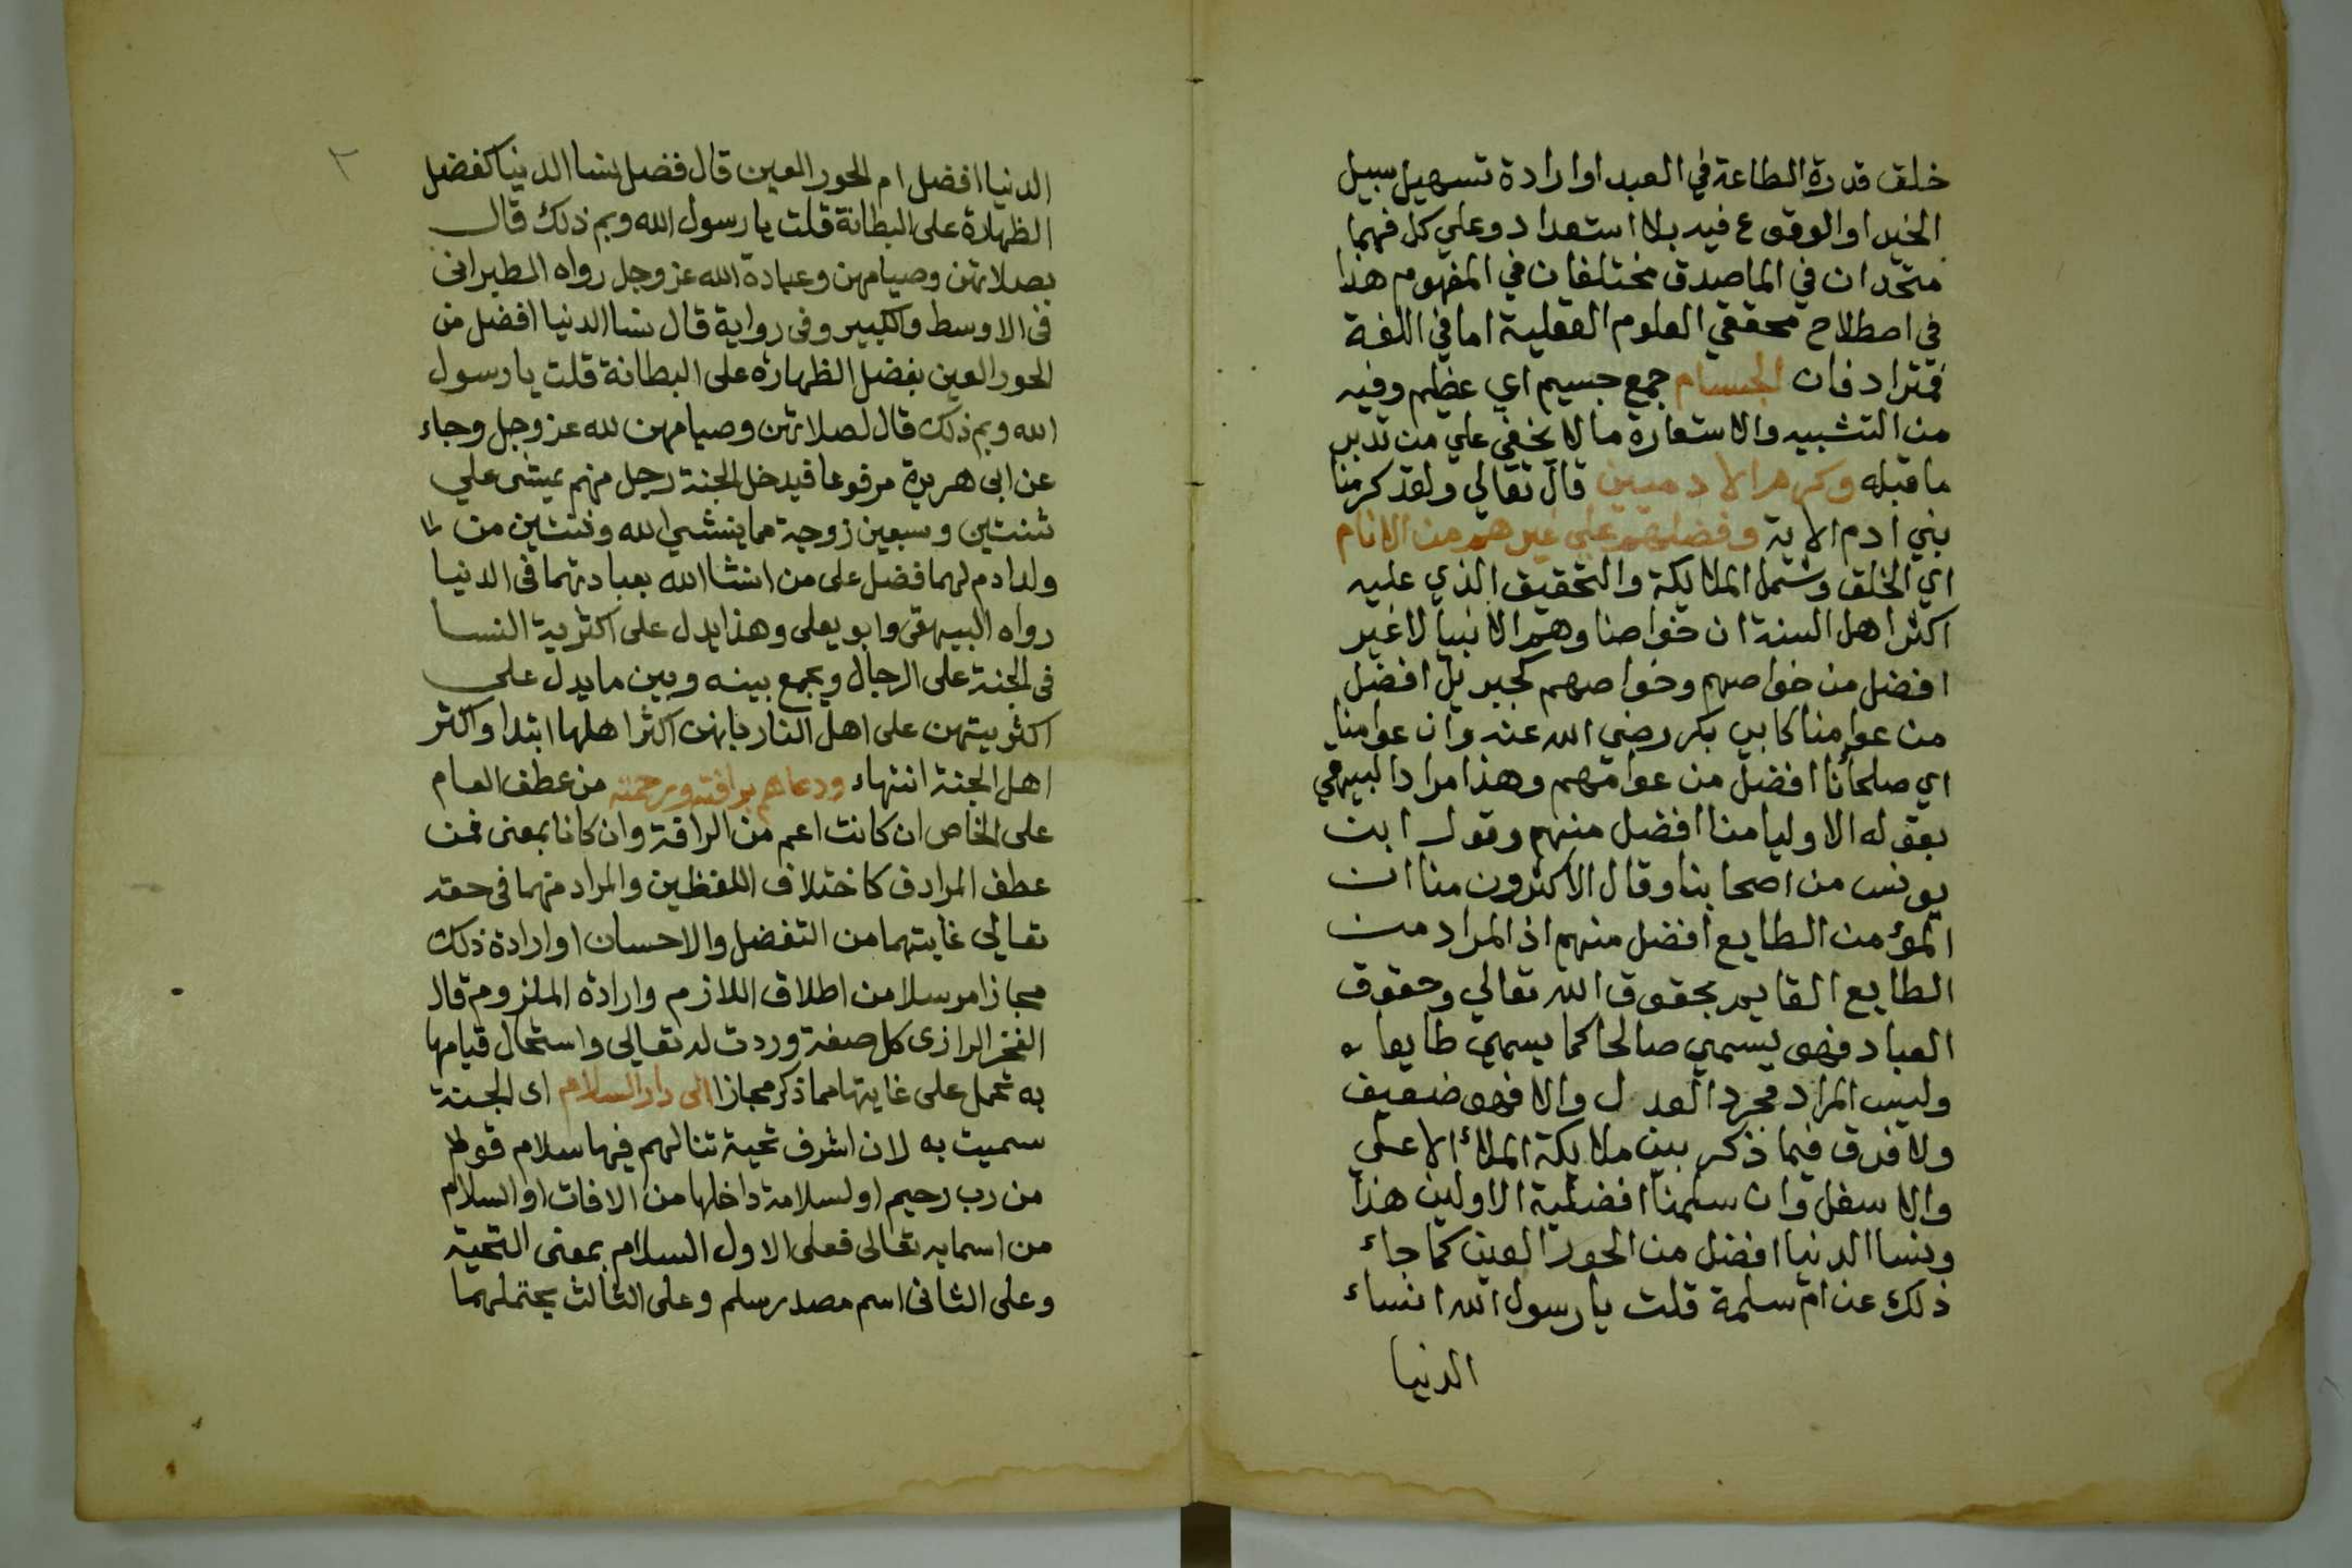 خلق قدرة الطاعة في العبد او ارادة تسهيل سبيل
الخير او الوقوع فيه بلا استعداد وعلي كل فهما
متحدان في الماصدق مختلفان في المفهوم هذا
في اصطلاح محققي العلوم العقلية اما في اللغة
فمترادفان الجسام جمع جسيم اي عظيم وفيه
من التشبيه والاستعارة مالا يخفي علي من تدبر
ما قبله وكرم الادميين قال تعالي ولقد كرمنا
بني ادم الاية وفضلهم علي غيرهم من الانام
اي الخلق وشمل الملايكة والتحقيق الذي عليه
اكثر اهل السنة ان خواصنا وهم الانبيا لا غير
افضل من خواصهم وخواصهم كجبريل افضل
من عوامنا كابي بكر رضي الله عنه وان عوامنا
اي صلحائنا افضل من عوامهم وهذا مراد البيهقي
بقوله الاوليا منا افضل منهم وقول ابن
يونس من اصحابنا وقال الاكثرون منا ان
المؤمن الطايع افضل منهم اذ المراد من
الطايع القايم بحقوق الله تعالي وحقوق
العباد فهو يسمي صالحا كما يسمي طايعا
وليس المراد مجرد العدل والا فهو ضعيف
ولا فرق فيما ذكر بين ملايكة الملائ الاعلي
والاسفل وان سلمنا افضلية الاولين هذا
ونسا الدنيا افضل من الحور العين كما جاء
ذلك عن ام سلمة قلت يا رسول الله انساء
الدنيا
٢
الدنيا افضل ام الحور العين قال فضل نسا الدنيا كفضل
الظهارة على البطانة قلت يا رسول الله وبم ذلك قال
بصلاتهن وصيامهن وعبادة الله عز وجل رواه الطبرانى
فى الاوسط والكبير وفى رواية قال نسا الدنيا افضل من
الحور العين بفضل الظهارة على البطانة قلت يا رسول
الله وبم ذلك قال لصلاتهن وصيامهن لله عز وجل وجاء
عن ابى هريرة مرفوعا فيدخل الجنة رجل منهم يمشى علي
ثنتين وسبعين زوجة مما ينشي الله وثنتين من
ولد ادم لهما فضل على من انشا الله بعبادتهما فى الدنيا
رواه البيهقى وابو يعلى وهذا يدل على اكثرية النسا
فى الجنة على الرجال ويجمع بينه وبين ما يدل علي
اكثريتهن على اهل النار بانهن اكثر اهلها ابتدا واكثر
اهل الجنة انتهاء ودعاهم برافته ورحمته من عطف العام
على الخاص ان كانت اعم من الرافة وان كانا بمعنى فمن
عطف المرادف كاختلاف اللفظين والمراد منهما فى حقه
تعالي غايتهما من التفضل والاحسان او ارادة ذلك
مجازا مرسلا من اطلاق اللازم وارادة الملزوم قال
الفخر الرازى كل صفة وردت له تعالى واستحال قيامها
به تحمل على غايتها مما ذكر مجازا الى دار السلام اى الجنة
سميت به لان اشرف تحية تنالهم فيها سلام قولا
من رب رحيم او لسلامة داخلها من الافات او السلام
من اسمايه تعالى فعلى الاول السلام بمعنى التحية
وعلى الثانى اسم مصدر سلم وعلى الثالث يحتملهما